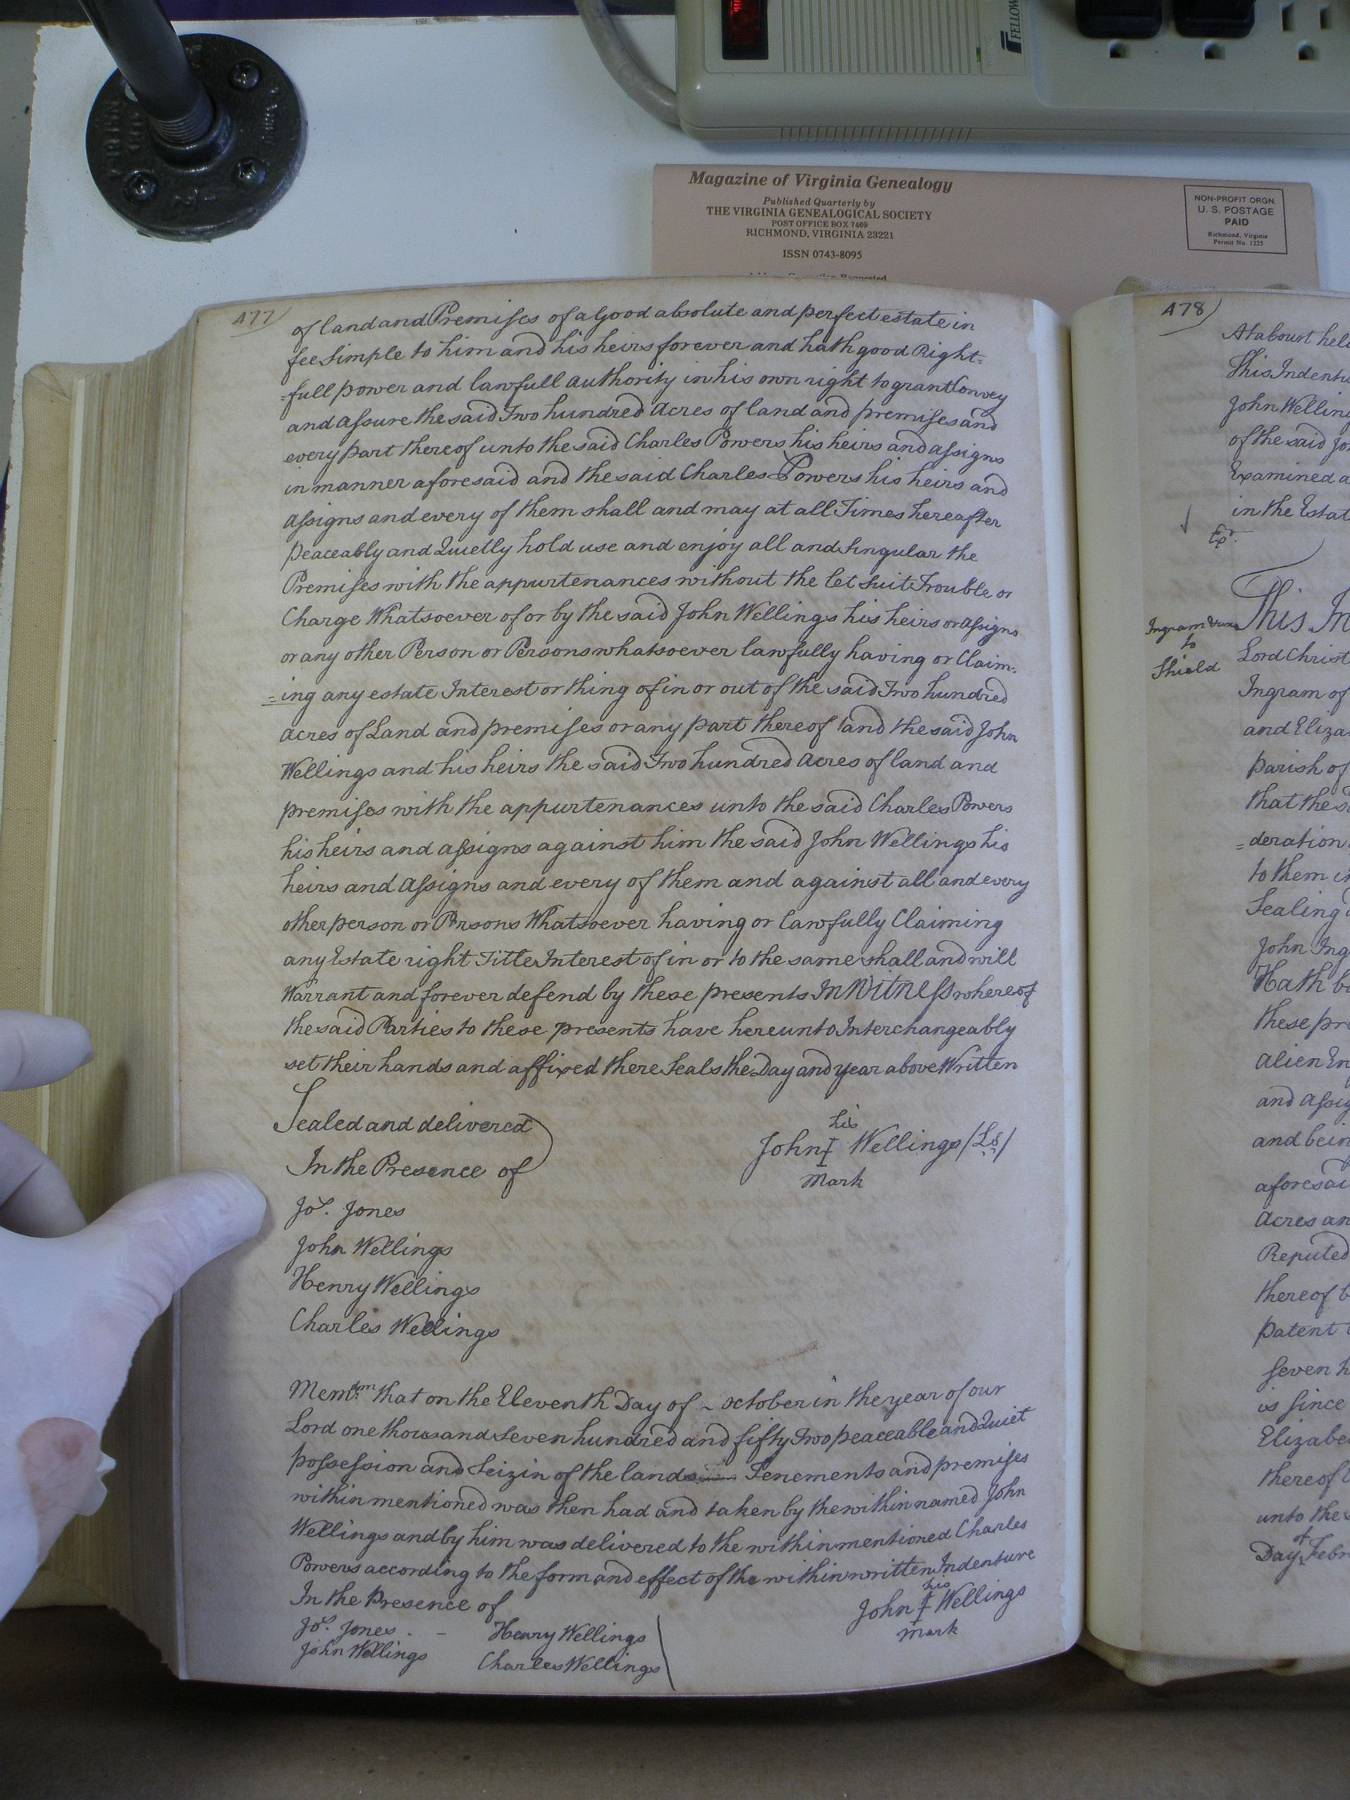 FELLOW
Magazine of Virginia Genealogy
Published Quarterly by
THE VIRGINIA GENEALOGICAL SOCIETY
POST OFFICE BOX 7469
RICHMOND, VIRGINIA 23221
ISSN 0743-8095
NON-PROFIT ORGN.
U. S. POSTAGE
PAID
Richmond, Virginia
Permit No. 1225
477
of land and Premises of a Good absolute and perfect estate in
fee Simple to him and his heirs forever and hath good Right=
=full power and lawfull authority in his own right to grant Convey
and assure the said Two hundred Acres of land and premises and
every part thereof unto the said Charles Powers his heirs and assigns
in manner aforesaid and the said Charles Powers his heirs and
assigns and every of them shall and may at all Times hereafter
peaceably and Quietly hold use and enjoy all and Singular the
Premises with the appurtenances without the let Suit Trouble or
Charge Whatsoever of or by the said John Wellings his heirs or assigns
or any other Person or Persons whatsoever lawfully having or Claim=
=ing any estate Interest or thing of in or out of the said Two hundred
acres of Land and premises or any part thereof and the said John
Wellings and his heirs the said Two hundred acres of land and
premises with the appurtenances unto the said Charles Powers
his heirs and assigns against him the said John Wellings his
heirs and assigns and every of them and against all and every
other person or Persons Whatsoever having or Lawfully Claiming
any Estate right Title Interest of in or to the same shall and will
Warrant and forever defend by these presents In Witness whereof
the said Parties to these presents have hereunto Interchangeably
set their hands and affixed there Seals the Day and year above Written
Sealed and delivered
In the Presence of
his
John I Wellings (Ls)
mark
Jos. Jones
John Wellings
Henry Wellings
Charles Wellings
Memdm that on the Eleventh Day of ~ October in the year of our
Lord one thousand Seven hundred and fifty Two peaceable and Quiet
possession and Seizin of the lands Tenements and premises
within mentioned was then had and taken by the within named John
Wellings and by him was delivered to the within mentioned Charles
Powers according to the form and effect of the within written Indenture
In the Presence of
his
John I Wellings
mark
Jos. Jones. - Henry Wellings
John Wellings Charles Wellings
478
At a Court held
This Indentu
John Welling
of the said Jo
Examined a
in the Estat
This In
Ingram
to
Shield
Lord Christ
Ingram of
and Eliza
parish of
that the s
=deration
to them in
Sealing
John Ing
Hath b
these pre
alien En
and assig
and bein
aforesai
acres an
Reputed
thereof b
patent
seven h
is since
Elizabe
thereof
unto the
Day of Febr